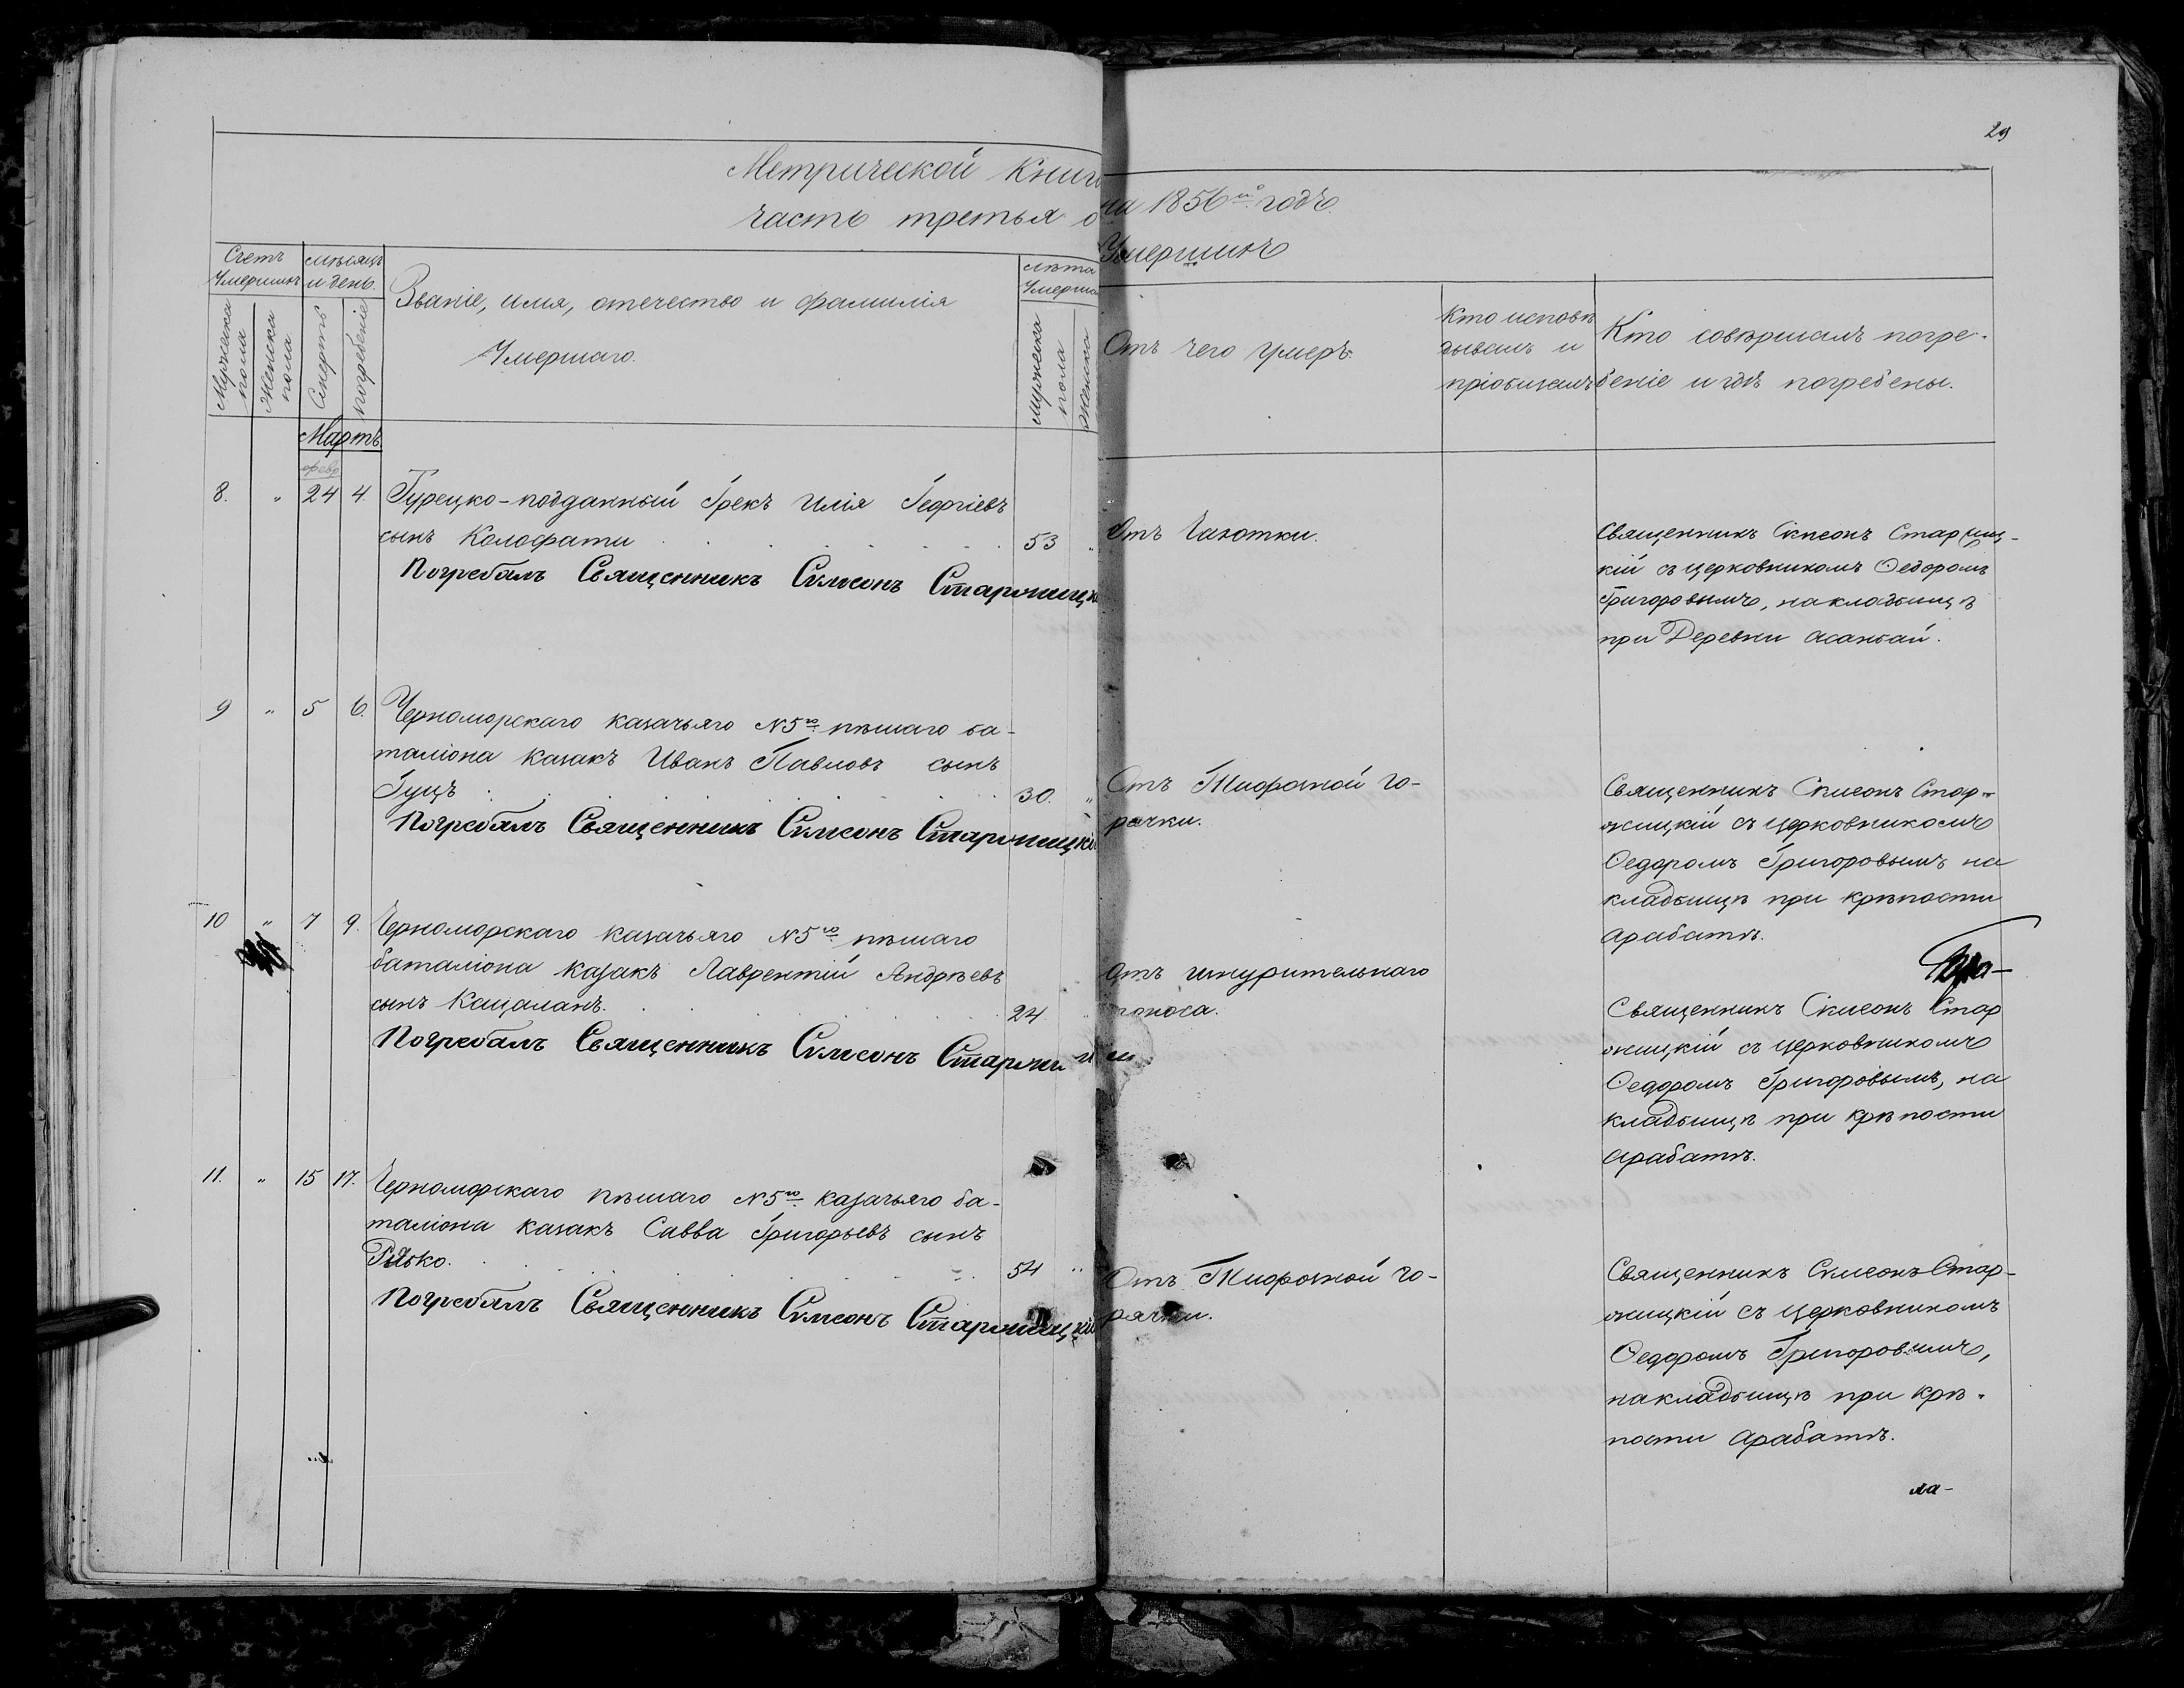 29
Метрической Книги на 1856й годъ.
часть третья о Умершихъ
Счетъ Умершихъ
Мужеска пола
Женска пола
мѣсяцъ и день.
Смерть
погребеніе
Званіе, имя, отечество и фамилія
Умершаго.
лѣта Умерша
мужеска пола
женска
Отъ чего умеръ.
Кто исповѣ
дывалъ и
пріобщалъ
Кто совершалъ погре-
беніе и гдѣ погребены.
Мартъ.
февр
8. " 24 4. Турецко-подданный Грекъ Илія Георгіевъ
сынъ Колофати 53 "
Погребалъ Священникъ Симеонъ Старжицкі
Отъ Чахотки.
Священникъ Симеонъ Старжиц-
кій съ церковникомъ Ѳедоромъ
Григоровымъ, на кладбищѣ
при Деревни Асанбай.
9 " 5 6. Черноморскаго казачьяго N5го пѣшаго ба-
таліона казакъ Иванъ Павловъ сынъ
Гуцъ 30. "
Погребалъ Священникъ Симеонъ Старжицкій
Отъ Тифозной го-
рячки.
Священникъ Симеонъ Стар-
жицкій съ церковникомъ
Ѳедоромъ Григоровымъ на
кладбищѣ при крѣпости
Арабатѣ.
10 " 7 9. Черноморскаго казачьяго N5го пѣшаго
баталіона казакъ Лаврентій Андрѣевъ
сынъ Кацаланъ. 24 "
Погребалъ Священникъ Симеонъ Старжи
Отъ изнурительнаго
поноса.
Священникъ Симеонъ Стар
жицкій съ церковникомъ
Ѳедоромъ Григоровымъ, на
кладбищѣ при крѣпости
Арабатѣ.
11. " 15 17. Черноморскаго пѣшаго N5го казачьяго ба-
таліона казакъ Савва Григорьевъ сынъ
54 "
Погребалъ Священникъ Симеонъ Старжицкій
Отъ Тифозной го-
рячки.
Священникъ Симеонъ Стар-
жицкій съ церковникомъ
Ѳедоромъ Григоровымъ,
на кладбищѣ при крѣ-
пости Арабатѣ.
ла-